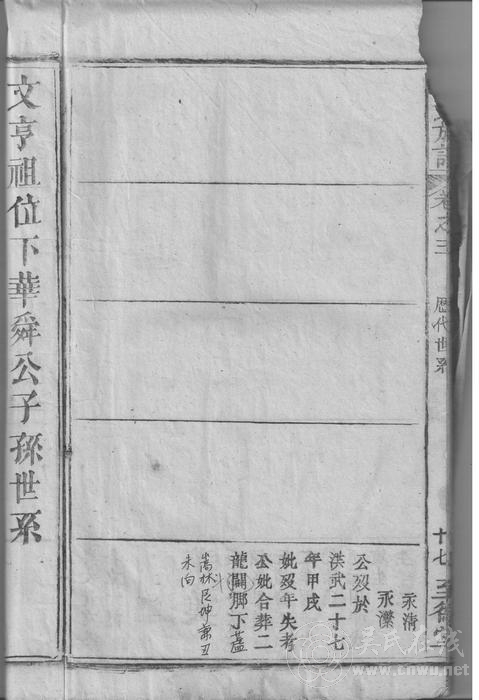 族譜 卷之三 歷代世系 十七 至德堂
永清
永濼
公歿於
洪武二十七
年甲戌
妣歿年失考
公妣合葬二
龍關脚下蓋
嵩林艮坤兼丑
未向
文亨祖位下華舜公子孫世系
吴氏在线
www.cnwu.net